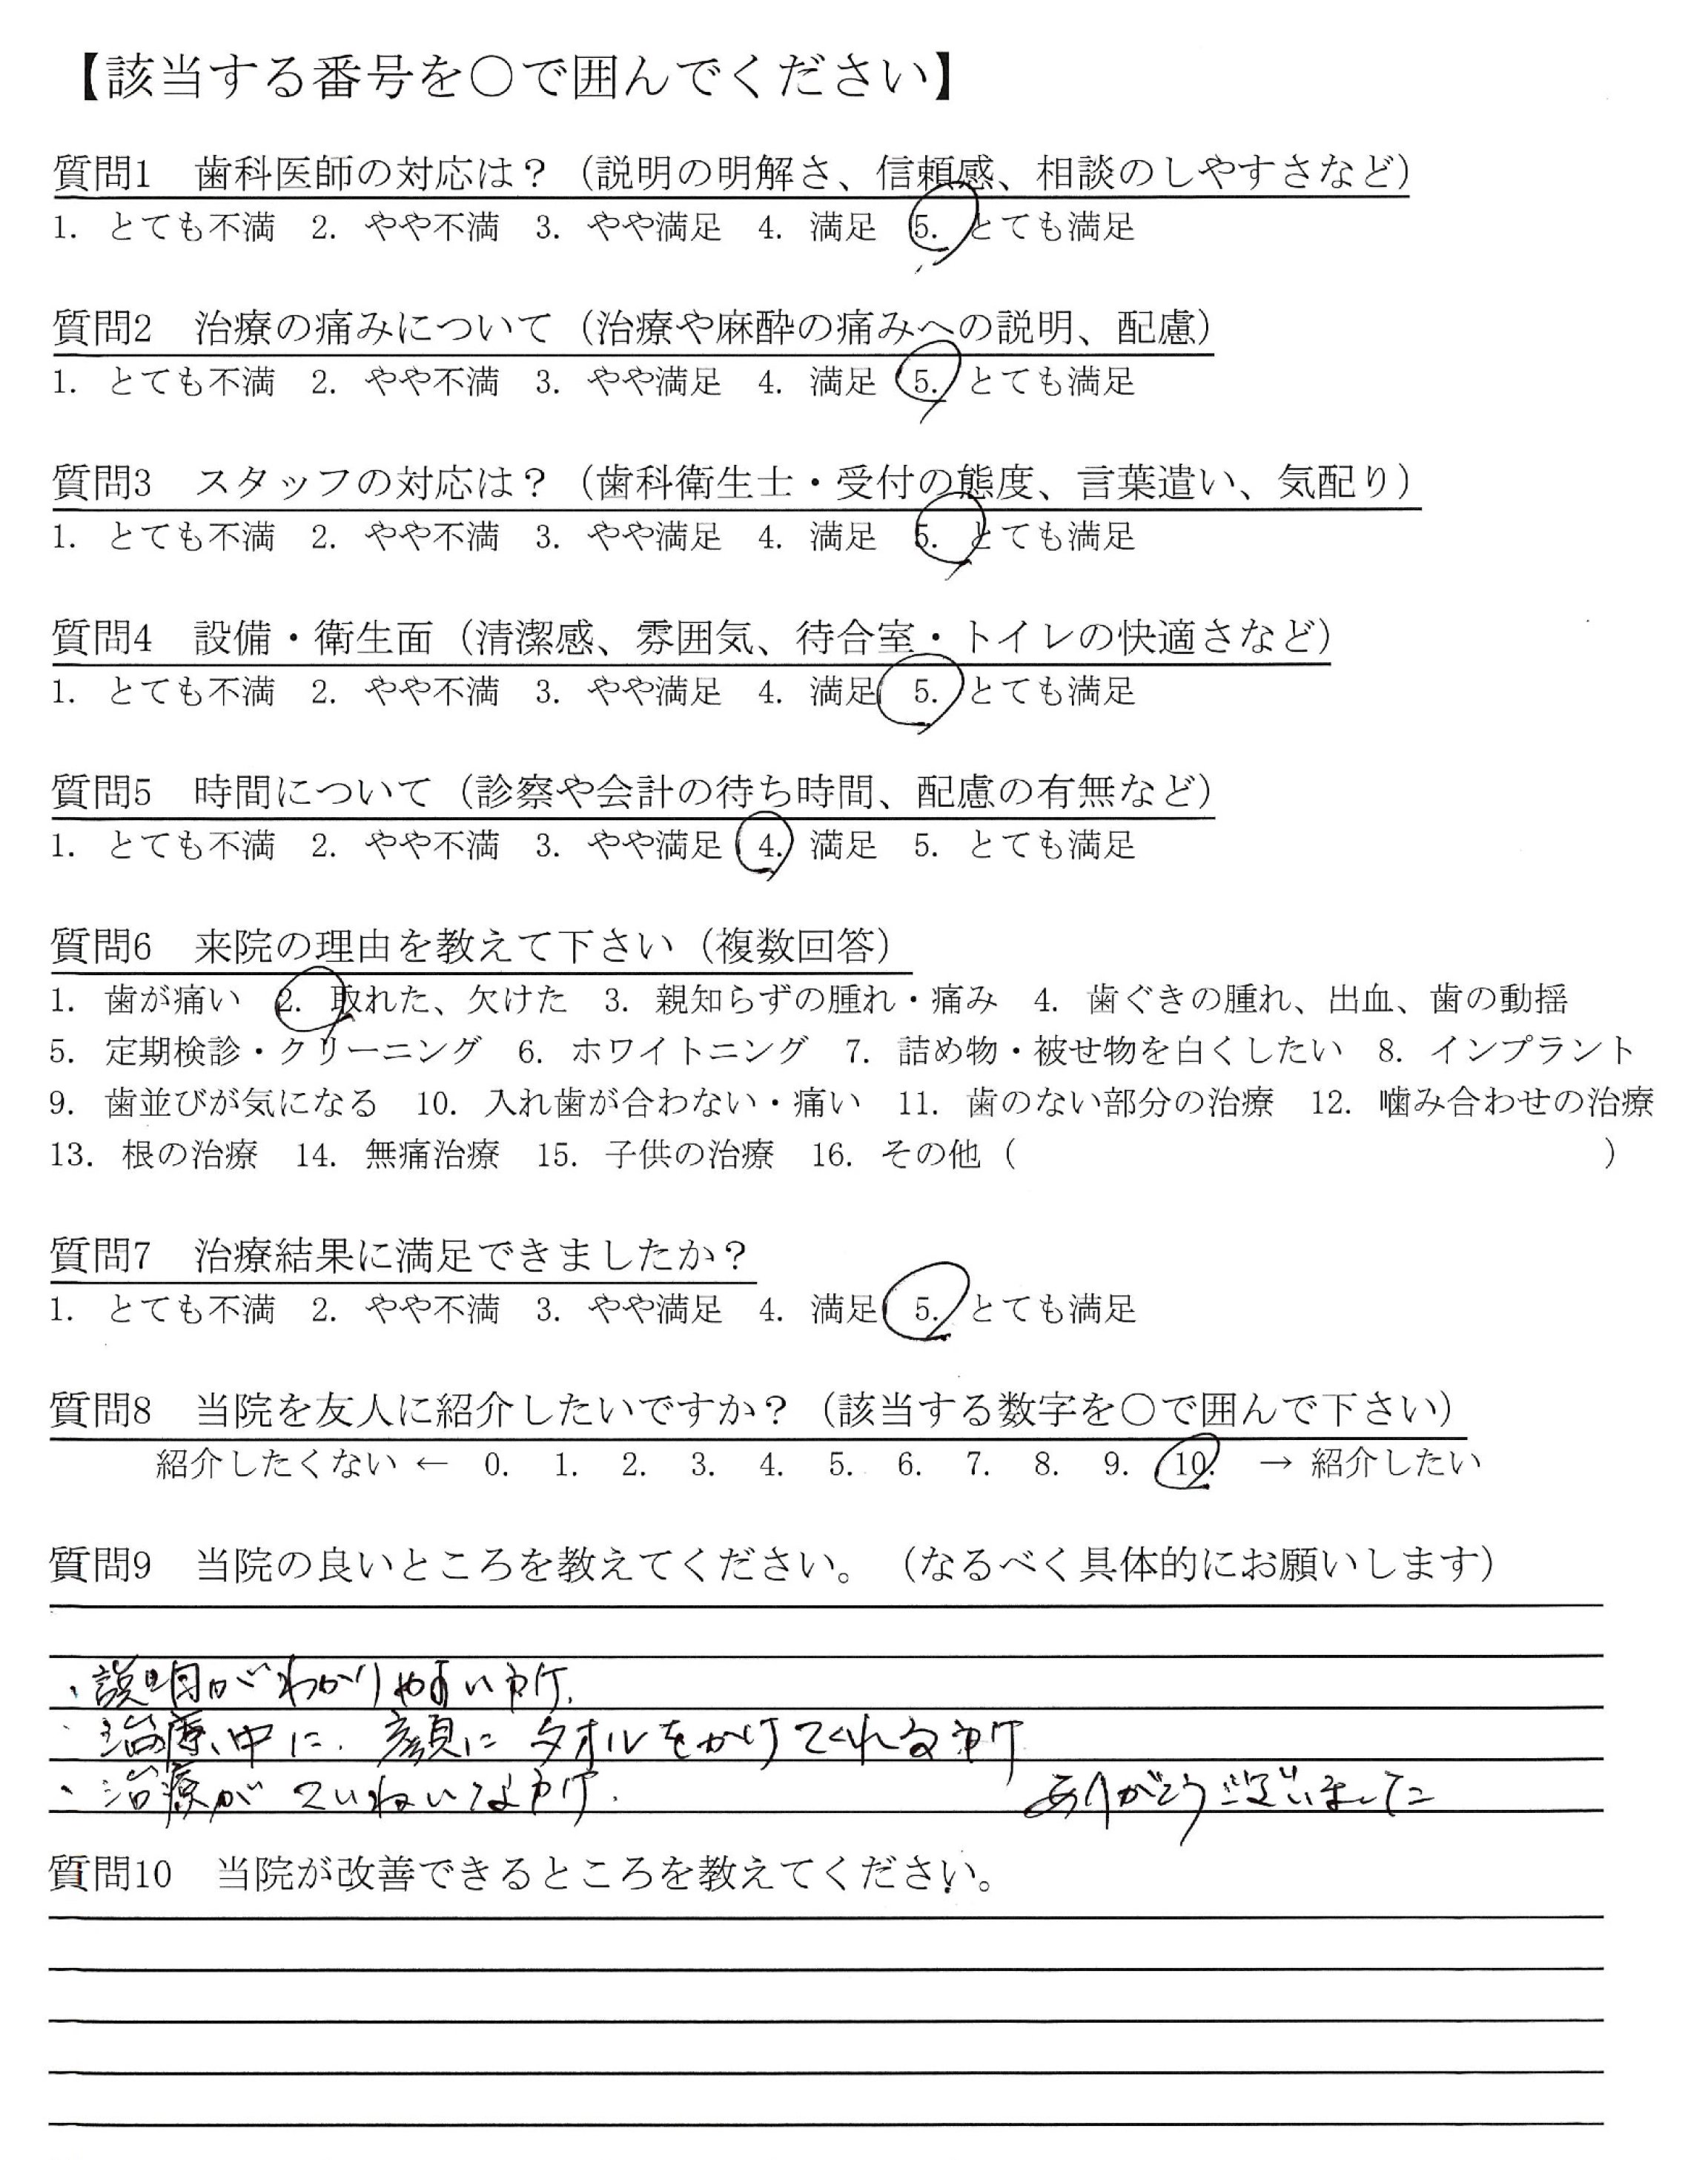 【該当する番号を○で囲んでください】
質問1　歯科医師の対応は？（説明の明解さ、信頼感、相談のしやすさなど）
1. とても不満　2. やや不満　3. やや満足　4. 満足　5. とても満足
質問2　治療の痛みについて（治療や麻酔の痛みへの説明、配慮）
1. とても不満　2. やや不満　3. やや満足　4. 満足　5. とても満足
質問3　スタッフの対応は？（歯科衛生士・受付の態度、言葉遣い、気配り）
1. とても不満　2. やや不満　3. やや満足　4. 満足　5. とても満足
質問4　設備・衛生面（清潔感、雰囲気、待合室・トイレの快適さなど）
1. とても不満　2. やや不満　3. やや満足　4. 満足　5. とても満足
質問5　時間について（診察や会計の待ち時間、配慮の有無など）
1. とても不満　2. やや不満　3. やや満足　4. 満足　5. とても満足
質問6　来院の理由を教えて下さい（複数回答）
1. 歯が痛い　2. 取れた、欠けた　3. 親知らずの腫れ・痛み　4. 歯ぐきの腫れ、出血、歯の動揺
5. 定期検診・クリーニング　6. ホワイトニング　7. 詰め物・被せ物を白くしたい　8. インプラント
9. 歯並びが気になる　10. 入れ歯が合わない・痛い　11. 歯のない部分の治療　12. 噛み合わせの治療
13. 根の治療　14. 無痛治療　15. 子供の治療　16. その他（　　　）
質問7　治療結果に満足できましたか？
1. とても不満　2. やや不満　3. やや満足　4. 満足　5. とても満足
質問8　当院を友人に紹介したいですか？（該当する数字を○で囲んで下さい）
紹介したくない ← 0. 1. 2. 3. 4. 5. 6. 7. 8. 9. 10. → 紹介したい
質問9　当院の良いところを教えてください。（なるべく具体的にお願いします）
・説明がわかりやすい
・治療中に、顔にタオルをかけてくれる
・治療がていねいな　ありがとうございました
質問10　当院が改善できるところを教えてください。